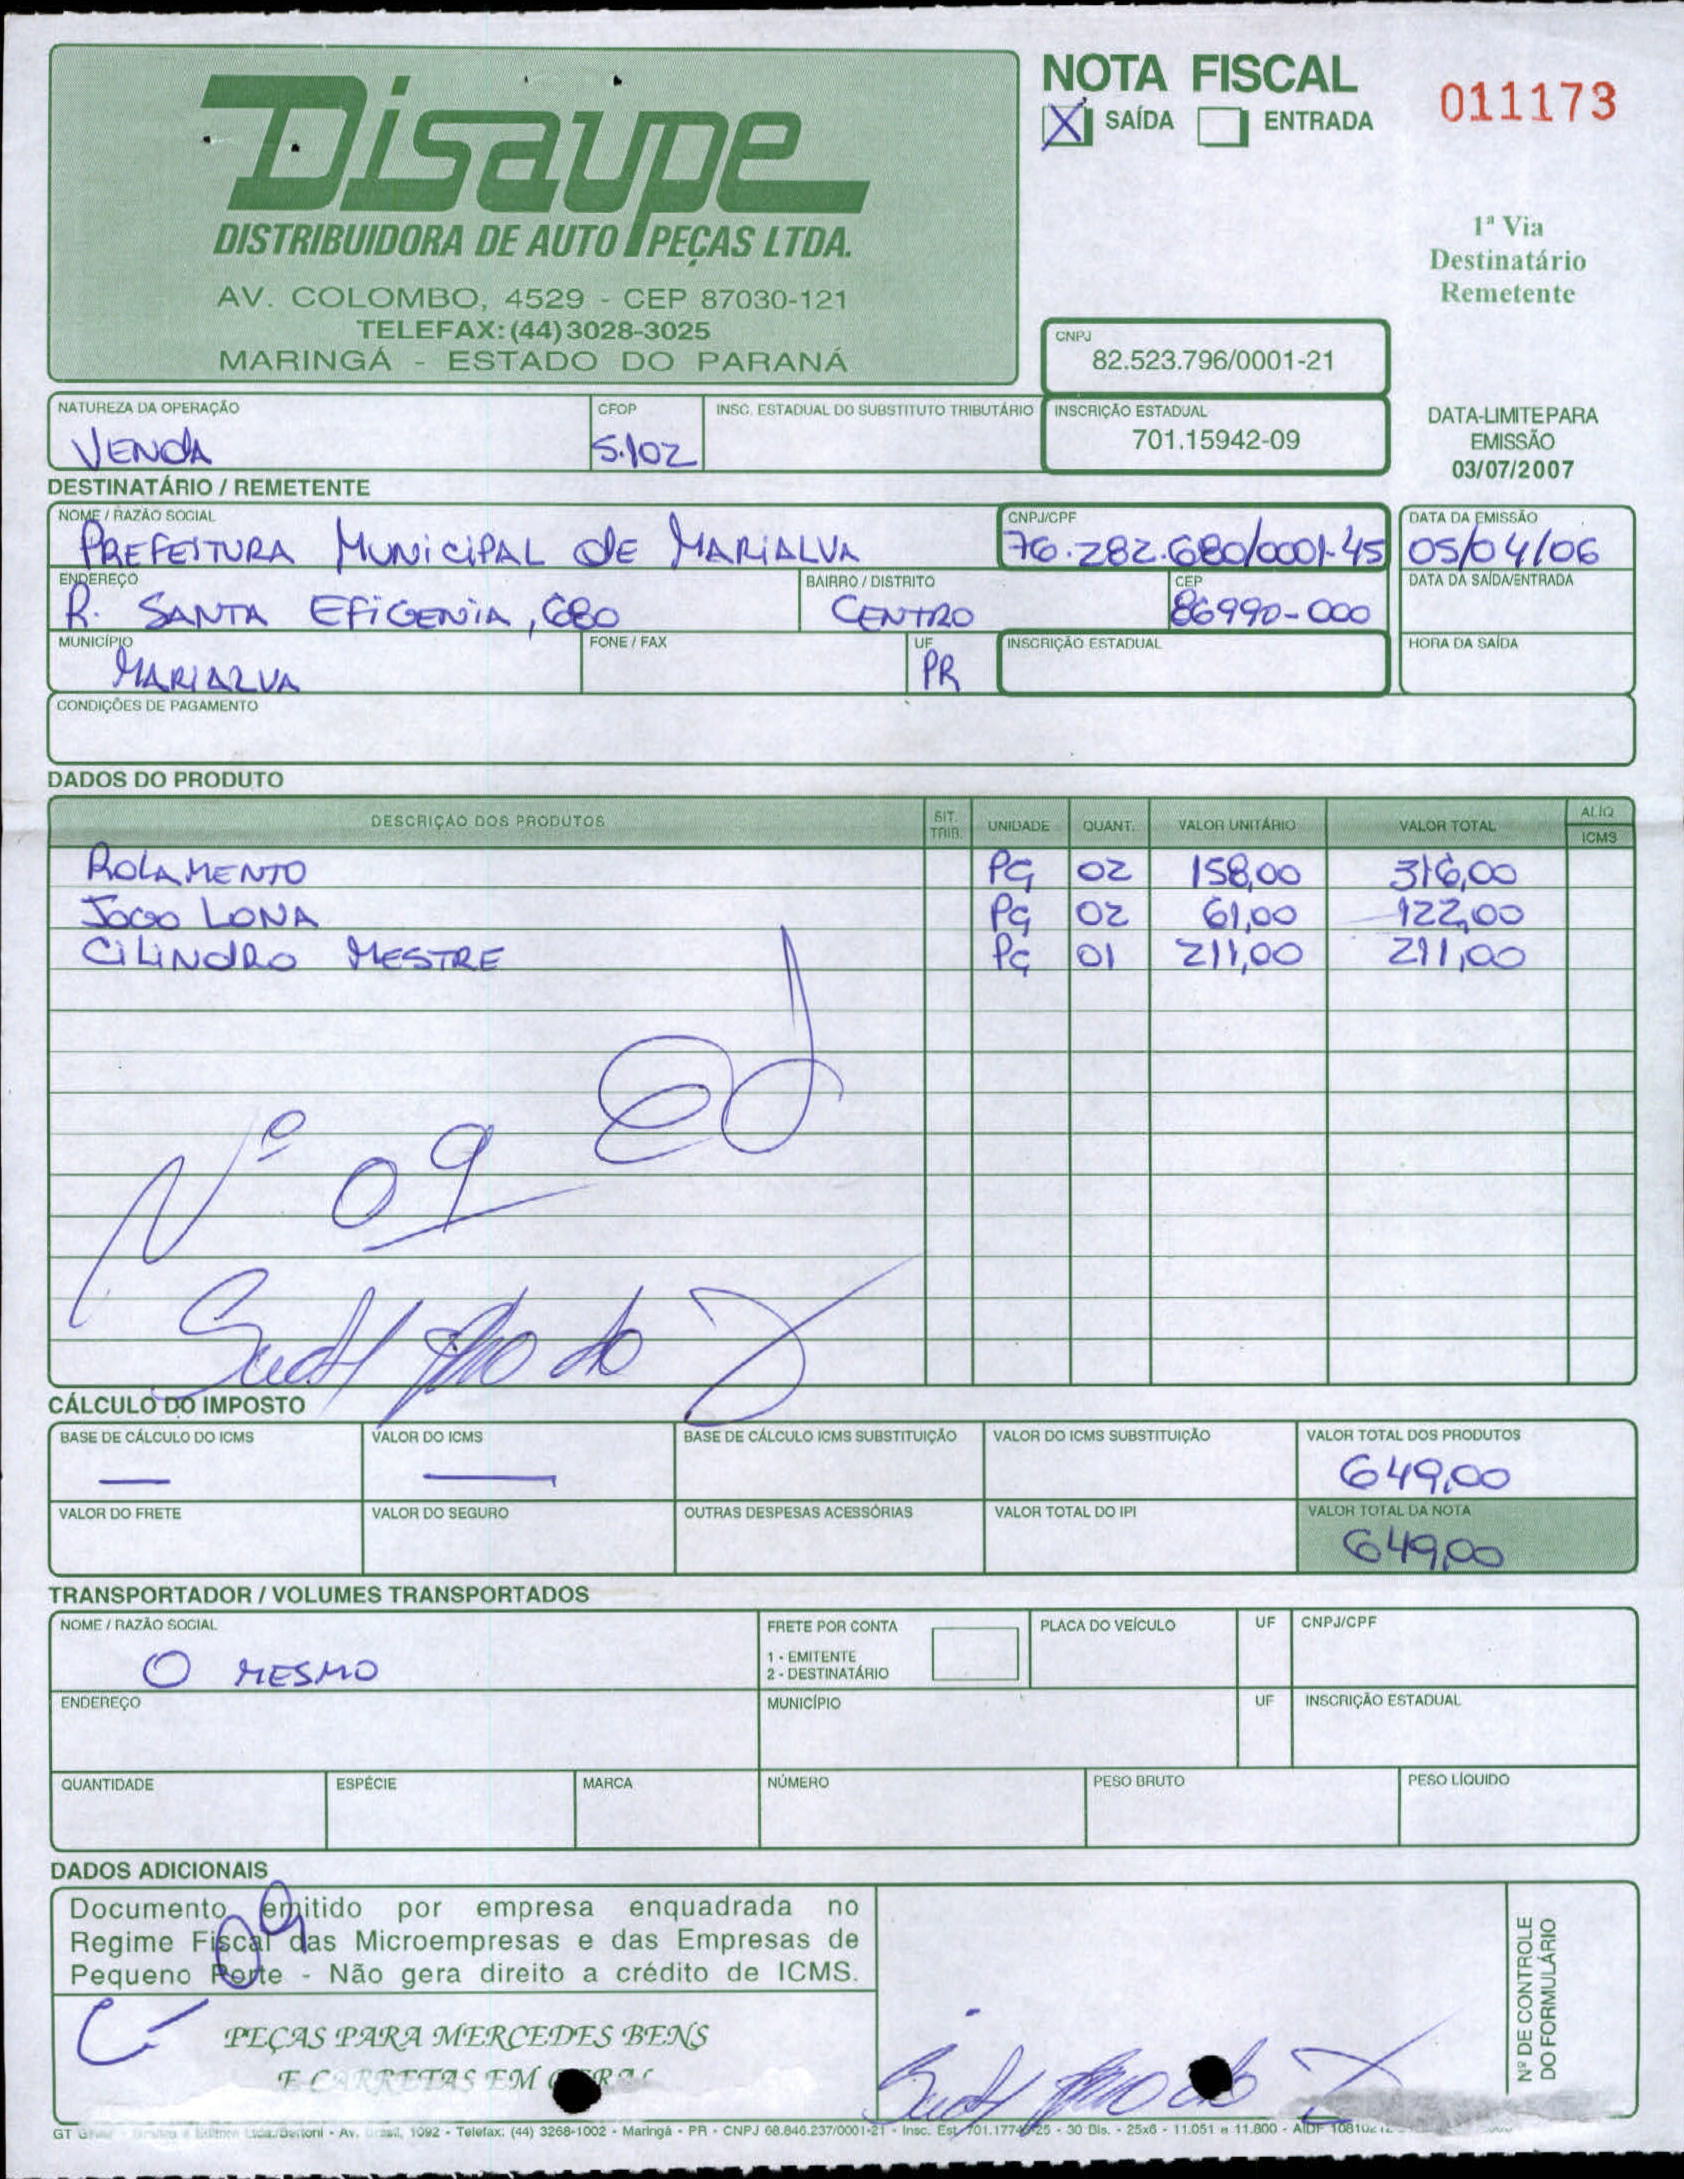 Disaupe
DISTRIBUIDORA DE AUTO PEÇAS LTDA.
AV. COLOMBO, 4529 - CEP 87030-121
TELEFAX: (44) 3028-3025
MARINGÁ - ESTADO DO PARANÁ
NOTA FISCAL
X SAÍDA ENTRADA
011173
1ª Via
Destinatário
Remetente
CNPJ
82.523.796/0001-21
NATUREZA DA OPERAÇÃO CFOP INSC. ESTADUAL DO SUBSTITUTO TRIBUTÁRIO INSCRIÇÃO ESTADUAL
VENDA 5.102 701.15942-09
DATA-LIMITE PARA
EMISSÃO
03/07/2007
DESTINATÁRIO / REMETENTE
NOME / RAZÃO SOCIAL CNPJ/CPF DATA DA EMISSÃO
PREFEITURA MUNICIPAL DE MARIALVA 76.282.680/0001-45 05/04/06
ENDEREÇO BAIRRO / DISTRITO CEP DATA DA SAÍDA/ENTRADA
R. SANTA EFIGENIA, 680 CENTRO 86990-000
MUNICÍPIO FONE / FAX UF INSCRIÇÃO ESTADUAL HORA DA SAÍDA
MARIALVA PR
CONDIÇÕES DE PAGAMENTO
DADOS DO PRODUTO
DESCRIÇÃO DOS PRODUTOS SIT. TRIB. UNIDADE QUANT. VALOR UNITÁRIO VALOR TOTAL ALIQ. ICMS
ROLAMENTO PÇ 02 158,00 316,00
JOGO LONA PÇ 02 61,00 122,00
CILINDRO MESTRE PÇ 01 211,00 211,00
Nº 09
CÁLCULO DO IMPOSTO
BASE DE CÁLCULO DO ICMS VALOR DO ICMS BASE DE CÁLCULO ICMS SUBSTITUIÇÃO VALOR DO ICMS SUBSTITUIÇÃO VALOR TOTAL DOS PRODUTOS
— — 649,00
VALOR DO FRETE VALOR DO SEGURO OUTRAS DESPESAS ACESSÓRIAS VALOR TOTAL DO IPI VALOR TOTAL DA NOTA
649,00
TRANSPORTADOR / VOLUMES TRANSPORTADOS
NOME / RAZÃO SOCIAL FRETE POR CONTA PLACA DO VEÍCULO UF CNPJ/CPF
O MESMO 1 - EMITENTE
2 - DESTINATÁRIO
ENDEREÇO MUNICÍPIO UF INSCRIÇÃO ESTADUAL
QUANTIDADE ESPÉCIE MARCA NÚMERO PESO BRUTO PESO LÍQUIDO
DADOS ADICIONAIS
Documento emitido por empresa enquadrada no
Regime Fiscal das Microempresas e das Empresas de
Pequeno Porte - Não gera direito a crédito de ICMS.
09
PEÇAS PARA MERCEDES BENS
E CARRETAS EM
Nº DE CONTROLE
DO FORMULÁRIO
1092 - Telefax: (44) 3268-1002 - Maringá - PR - CNPJ 68.846.237/0001-21 - Insc. Est. - 30 Bls. - 25x6 - 11.051 a 11.800 - AIDF